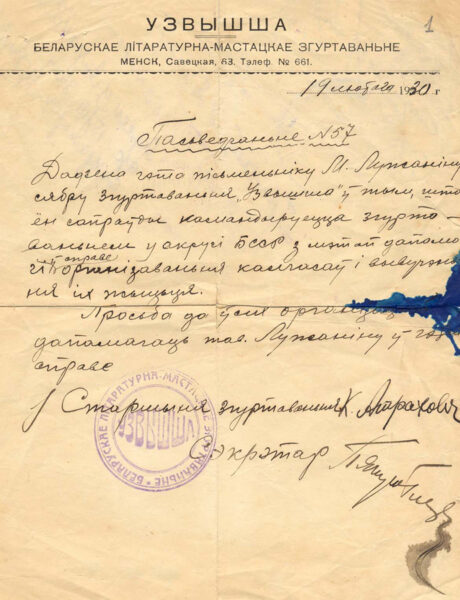 1
УЗВЫШША
БЕЛАРУСКАЕ ЛІТАРАТУРНА-МАСТАЦКАЕ ЗГУРТАВАНЬНЕ
МЕНСК, Савецкая, 63. Тэлеф. № 661.
19 лютага 1930 г
Пасьведчаньне №57
Дадзена гэта пісьменьніку М. Лужаніну
сябру згуртаваньня „Узвышша" ў тым, што
ён сапраўды камандыруецца згурта-
ваньнем у акругі БССР з мэтай дапамо
гі ў справе арганізаваньня калгасаў і вывучэн
ня іх жыцьця.
Просьба да ўсіх
дапамагаць тав. Лужаніну ў
справе
Старшыня згуртаваньня
Сэкрэтар
БЕЛАРУСКАЕ ЛІТАРАТУРНА-МАСТАЦКАЕ ЗГУРТАВАНЬНЕ
УЗВЫШША